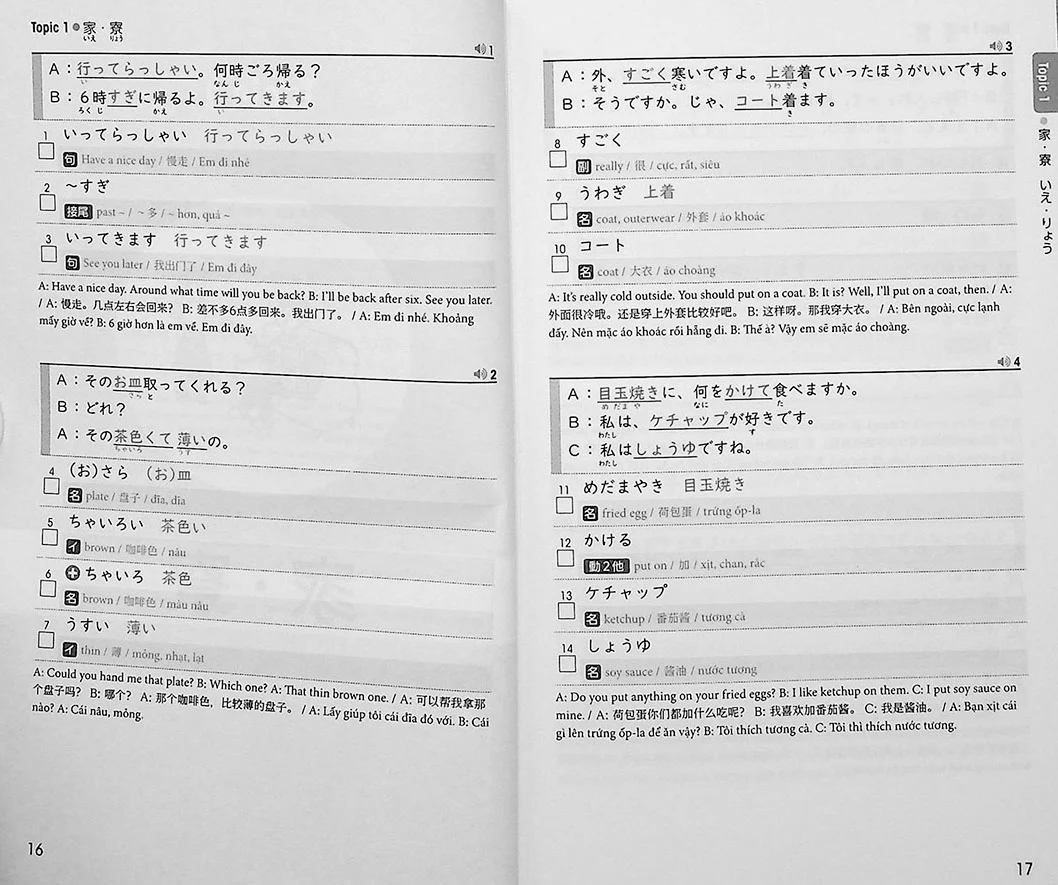 Topic 1 ● 家・寮
いえ りょう
1
A：行ってらっしゃい。何時ごろ帰る？
い なんじ かえ
B：6時すぎに帰るよ。行ってきます。
ろくじ かえ い
1 いってらっしゃい 行ってらっしゃい
句 Have a nice day / 慢走 / Em đi nhé
2 〜すぎ
接尾 past ~ / ～多 / ~ hơn, quá ~
3 いってきます 行ってきます
句 See you later / 我出门了 / Em đi đây
A: Have a nice day. Around what time will you be back? B: I'll be back after six. See you later.
/ A: 慢走。几点左右会回来？ B: 差不多6点多回来。我出门了。 / A: Em đi nhé. Khoảng
mấy giờ về? B: 6 giờ hơn là em về. Em đi đây.
2
A：そのお皿取ってくれる？
さら と
B：どれ？
A：その茶色くて薄いの。
ちゃいろ うす
4 （お）さら （お）皿
名 plate / 盘子 / đĩa, dĩa
5 ちゃいろい 茶色い
イ brown / 咖啡色 / nâu
6 ＋ ちゃいろ 茶色
名 brown / 咖啡色 / màu nâu
7 うすい 薄い
イ thin / 薄 / mỏng, nhạt, lạt
A: Could you hand me that plate? B: Which one? A: That thin brown one. / A: 可以帮我拿那
个盘子吗？ B: 哪个？ A: 那个咖啡色，比较薄的盘子。 / A: Lấy giúp tôi cái dĩa đó với. B: Cái
nào? A: Cái nâu, mỏng.
16
3
A：外、すごく寒いですよ。上着着ていったほうがいいですよ。
そと さむ うわぎ き
B：そうですか。じゃ、コート着ます。
き
8 すごく
副 really / 很 / cực, rất, siêu
9 うわぎ 上着
名 coat, outerwear / 外套 / áo khoác
10 コート
名 coat / 大衣 / áo choàng
A: It's really cold outside. You should put on a coat. B: It is? Well, I'll put on a coat, then. / A:
外面很冷哦。还是穿上外套比较好吧。 B: 这样呀。那我穿大衣。 / A: Bên ngoài, cực lạnh
đấy. Nên mặc áo khoác rồi hẵng đi. B: Thế à? Vậy em sẽ mặc áo choàng.
4
A：目玉焼きに、何をかけて食べますか。
めだまや なに た
B：私は、ケチャップが好きです。
わたし す
C：私はしょうゆですね。
わたし
11 めだまやき 目玉焼き
名 fried egg / 荷包蛋 / trứng ốp-la
12 かける
動2他 put on / 加 / xịt, chan, rắc
13 ケチャップ
名 ketchup / 番茄酱 / tương cà
14 しょうゆ
名 soy sauce / 酱油 / nước tương
A: Do you put anything on your fried eggs? B: I like ketchup on them. C: I put soy sauce on
mine. / A: 荷包蛋你们都加什么吃呢？ B: 我喜欢加番茄酱。 C: 我是酱油。 / A: Bạn xịt cái
gì lên trứng ốp-la để ăn vậy? B: Tôi thích tương cà. C: Tôi thì thích nước tương.
Topic 1 ● 家・寮 いえ・りょう
17